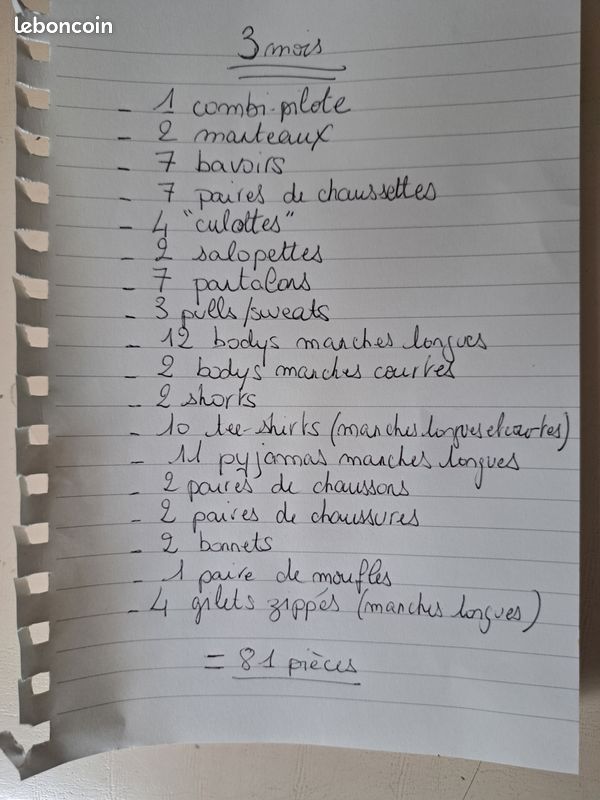 leboncoin
3 mois
- 1 combi-pilote
- 2 manteaux
- 7 bavoirs
- 7 paires de chaussettes
- 4 "culottes"
- 2 salopettes
- 7 pantalons
- 3 pulls/sweats
- 12 bodys manches longues
- 2 bodys manches courtes
- 2 shorts
- 10 tee-shirts (manches longues et courtes)
- 11 pyjamas manches longues
- 2 paires de chaussons
- 2 paires de chaussures
- 2 bonnets
- 1 paire de moufles
- 4 gilets zippés (manches longues)
= 81 pièces